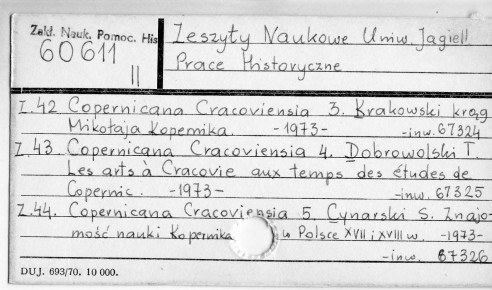 Zakł. Nauk. Pomoc. His
60611
II
Zeszyty Naukowe Uniw. Jagiell.
Prace Historyczne
Z. 42 Copernicana Cracoviensia 3. Krakowski krąg
Mikołaja Kopernika. -1973- -inw. 67324
Z. 43. Copernicana Cracoviensia 4. Dobrowolski T.
Les arts à Cracovie aux temps des études de
Copernic. -1973- -inw. 67325
Z. 44. Copernicana Cracoviensia 5. Cynarski S. Znajo-
mość nauki Kopernika w Polsce XVII i XVIII w. -1973-
-inw. 67326
DUJ. 693/70. 10 000.